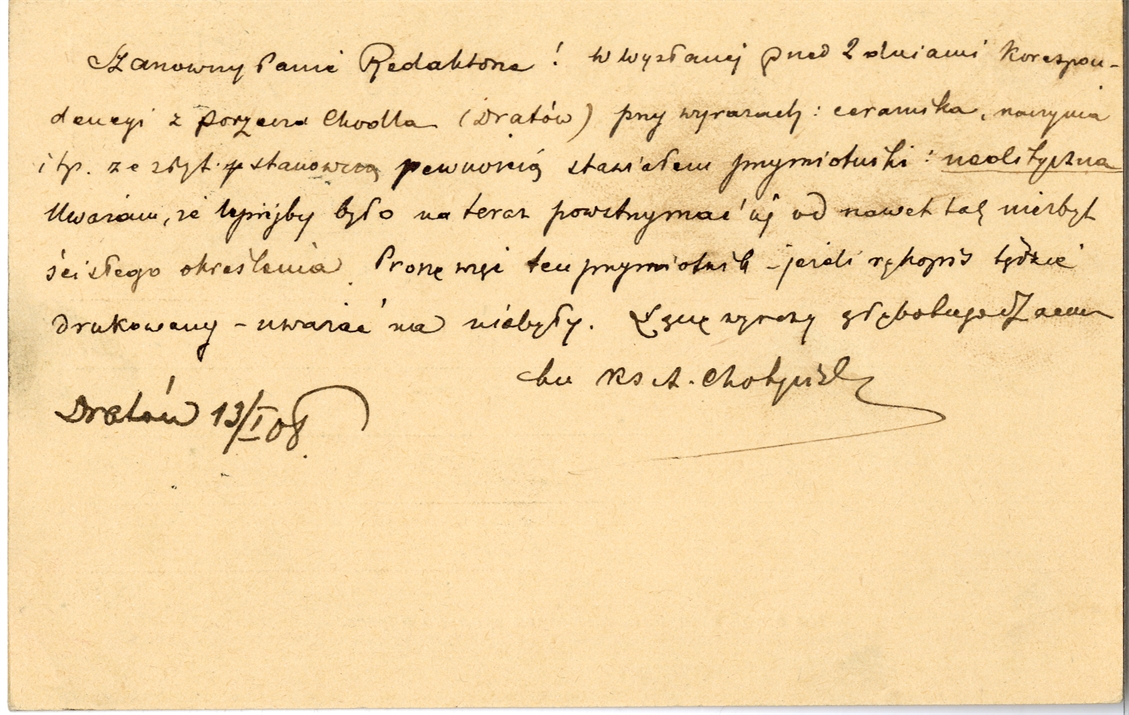 Szanowny Panie Redaktorze! W wysłanej przed 2 dniami korespon-
dencyi z porzecza Chodla (Dratów) przy wyrazach: ceramika, naczynia
itp. ze zbyt stanowczą pewnością stawiałem przymiotniki: neolityczna
Uważam, że lepiejby było na teraz powstrzymać się od nawet tak niezbyt
ścisłego określenia. Proszę więc ten przymiotnik – jeżeli rękopis będzie
drukowany – uważać na niebyły. Łączę wyrazy głębokiego szacun-
ku Ks A.
Dratów 13/I 08